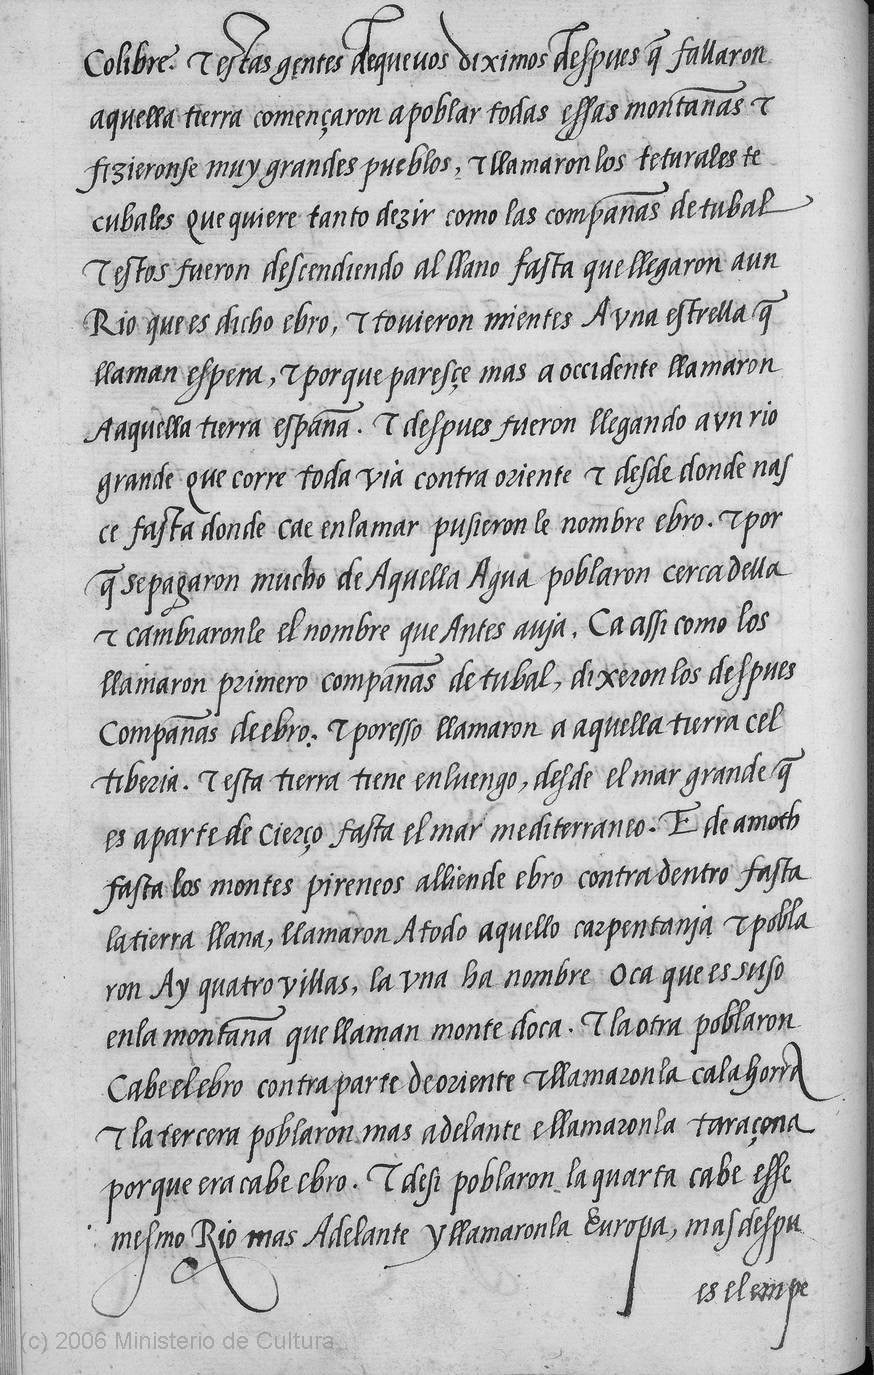 Colibre. τ estas gentes dequevos diximos despues q̃ fallaron
aquella tierra començaron apoblar todas essas montañas τ
fizieronse muy grandes pueblos, τ llamaronlos teturales te
cubales que quiere tanto dezir como las compañas de tubal
τ estos fueron descendiendo al llano fasta que llegaron aun
Rio que es dicho ebro, τ tovieron mientes A vna estrella q̃
llaman espera, τ porque paresçe mas a occidente llamaron
Aaquella tierra españa. τ despues fueron llegando avn rio
grande que corre toda via contra oriente τ desde donde nas
ce fasta donde cae enlamar pusieronle nombre ebro. τ por
q̃ sepagaron mucho de Aquella Agua poblaron cerca della
τ cambiaronle el nombre que Antes auja. Ca assi como los
llamaron primero compañas de tubal, dixeronlos despues
Compañas de ebro. τ poresso llamaron a aquella tierra cel
tiberia. τ esta tierra tiene enluengo, desde el mar grande q̃
es aparte de cierço fasta el mar mediterraneo. E de amoth
fasta los montes pireneos alliende ebro contra dentro fasta
latierra llana, llamaron A todo aquello carpentanja τ pobla
ron Ay quatro villas, la vna ha nombre oca que es suso
enla montaña que llaman monte doca. τ la otra poblaron
Cabe el ebro contra parte de oriente τ llamaronla calahorra
τ la tercera poblaron mas adelante e llamaronla taraçona
porque era cabe ebro. τ desi poblaron la quarta cabe esse
mesmo Rio mas Adelante y llamaronla Europa, mas despu
es el empe
(c) 2006 Ministerio de Cultura